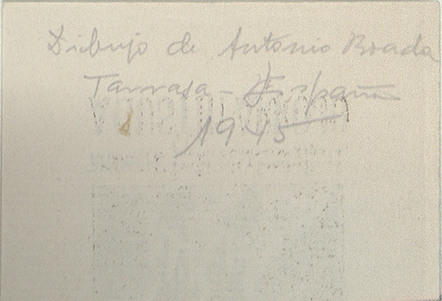 Dibujo de Antonio Boada
Tarrasa - España
1945